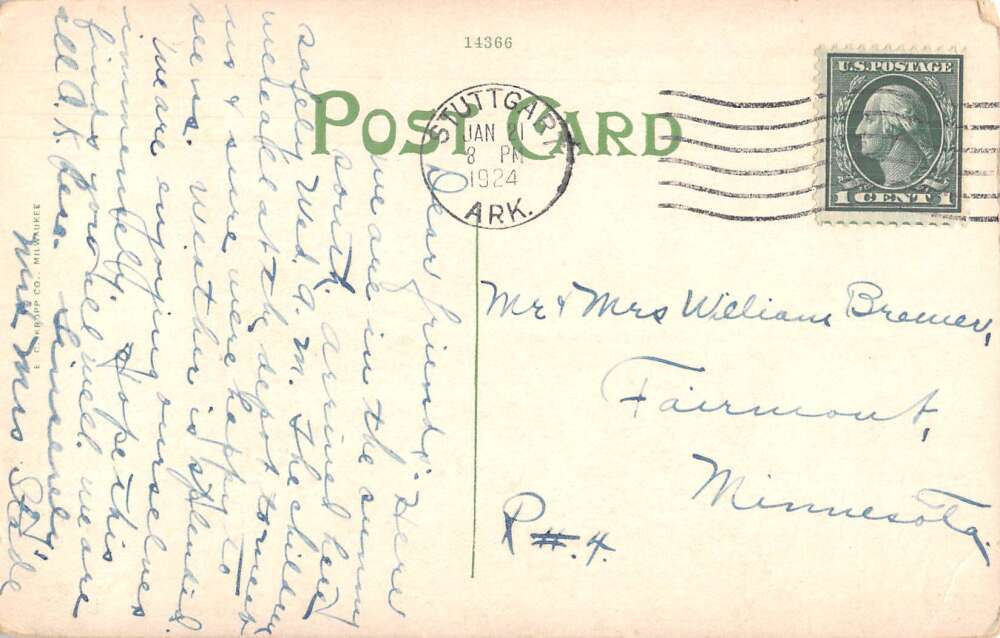 14366
POST CARD
STUTTGART
JAN 21
8 PM
1924
ARK.
U.S. POSTAGE
1 CENT 1
Dear friends: Here
we are in the sunny
south. Arrived here
safely Wed. A. M. The children
were all at the depot to meet
us & sure were happy to
see us. Weather is splendid.
We are enjoying ourselves
immensely. Hope this
finds you all well. We are
all O.K. here. Sincerely
Mr & Mrs William Bremer,
Fairmont,
Minnesota.
R #.4.
E. C. KROPP CO., MILWAUKEE